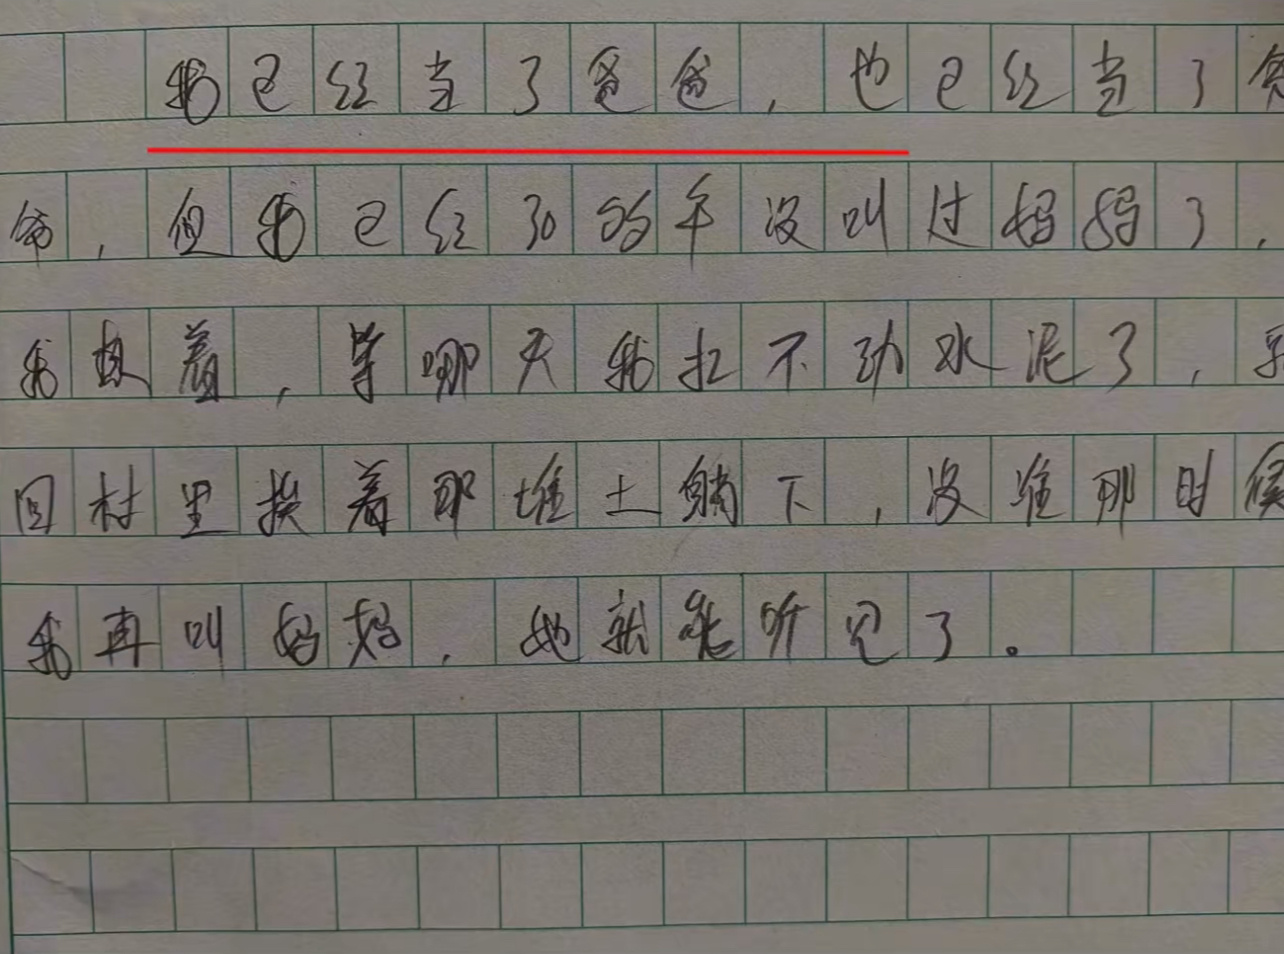 我已经当了爸爸，也已经当了爷
爷，但我已经30多年没叫过妈妈了，
我想着，等哪天我扛不动水泥了，
回村里挨着那堆土躺下，没准那时候
我再叫妈妈，她就能听见了。